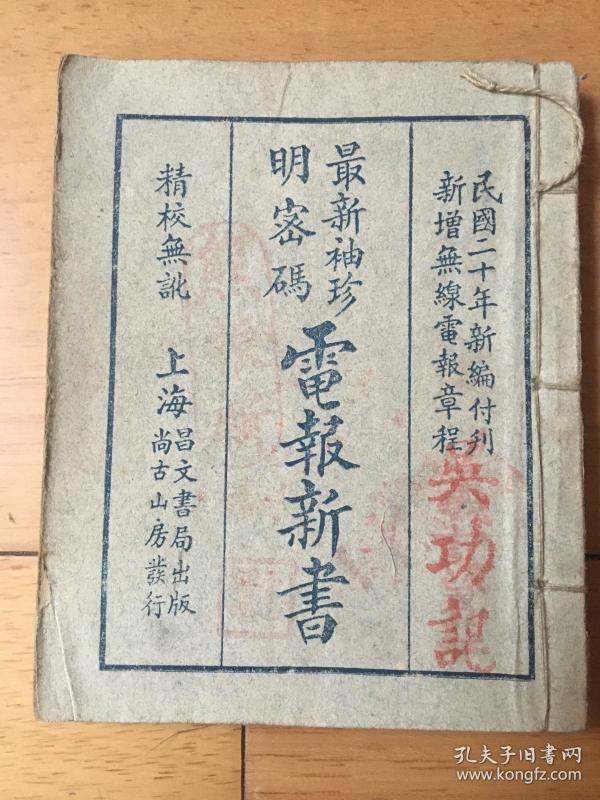 民國二十年新編付刊
新增無線電報章程
吳功記
最新袖珍
明密碼
電報新書
精校無訛
上海
昌文書局出版
尚古山房發行
孔夫子旧书网
www.kongfz.com